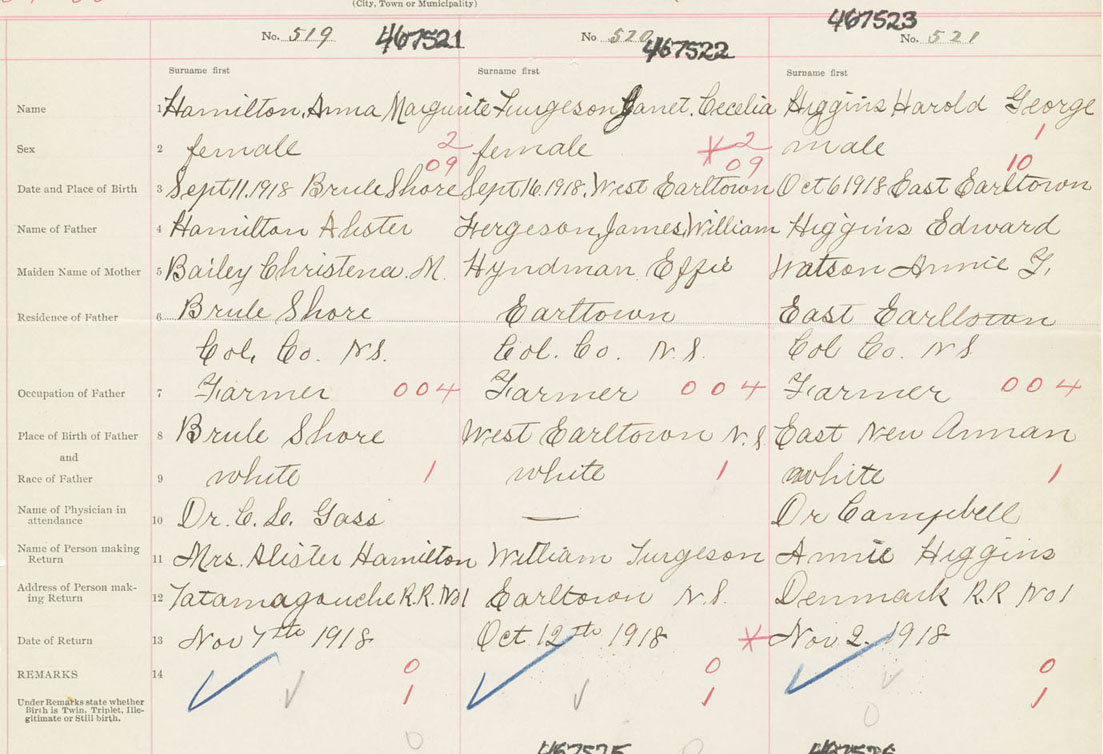 (City, Town or Municipality)
467523
No. 519 467521 No 520 467522 No. 521
Surname first Surname first Surname first
Name 1 Hamilton, Anna Margurite Furgeson Janet. Cecelia Higgins Harold George
Sex 2 female 2 female X 2 male 1
09 09 10
Date and Place of Birth 3 Sept 11. 1918 Brule Shore Sept 16. 1918. West Earltown Oct 6 1918 East Earltown
Name of Father 4 Hamilton Alister Fergeson, James, William Higgins Edward
Maiden Name of Mother 5 Bailey Christena. M. Hyndman Effie Watson Annie F.
Residence of Father 6 Brule Shore Earltown East Earltown
Col. Co. N.S. Col. Co. N.S. Col Co. N S
Occupation of Father 7 Farmer 004 Farmer 004 Farmer 004
Place of Birth of Father 8 Brule Shore West Earltown N.S East New Annan
and
Race of Father 9 white 1 white 1 white 1
Name of Physician in
attendance 10 Dr. C. Gass — Dr Campbell
Name of Person making
Return 11 Mrs. Alister Hamilton William Furgeson Annie Higgins
Address of Person mak-
ing Return 12 Tatamagouche R.R. No 1 Earltown N.S. Denmark R.R No 1
Date of Return 13 Nov 7th 1918 Oct 12th 1918 X Nov 2. 1918
REMARKS 14 0 0 0
Under Remarks state whether
Birth is Twin, Triplet, Ille-
gitimate or Still-birth. 1 1 1
0
0
467525